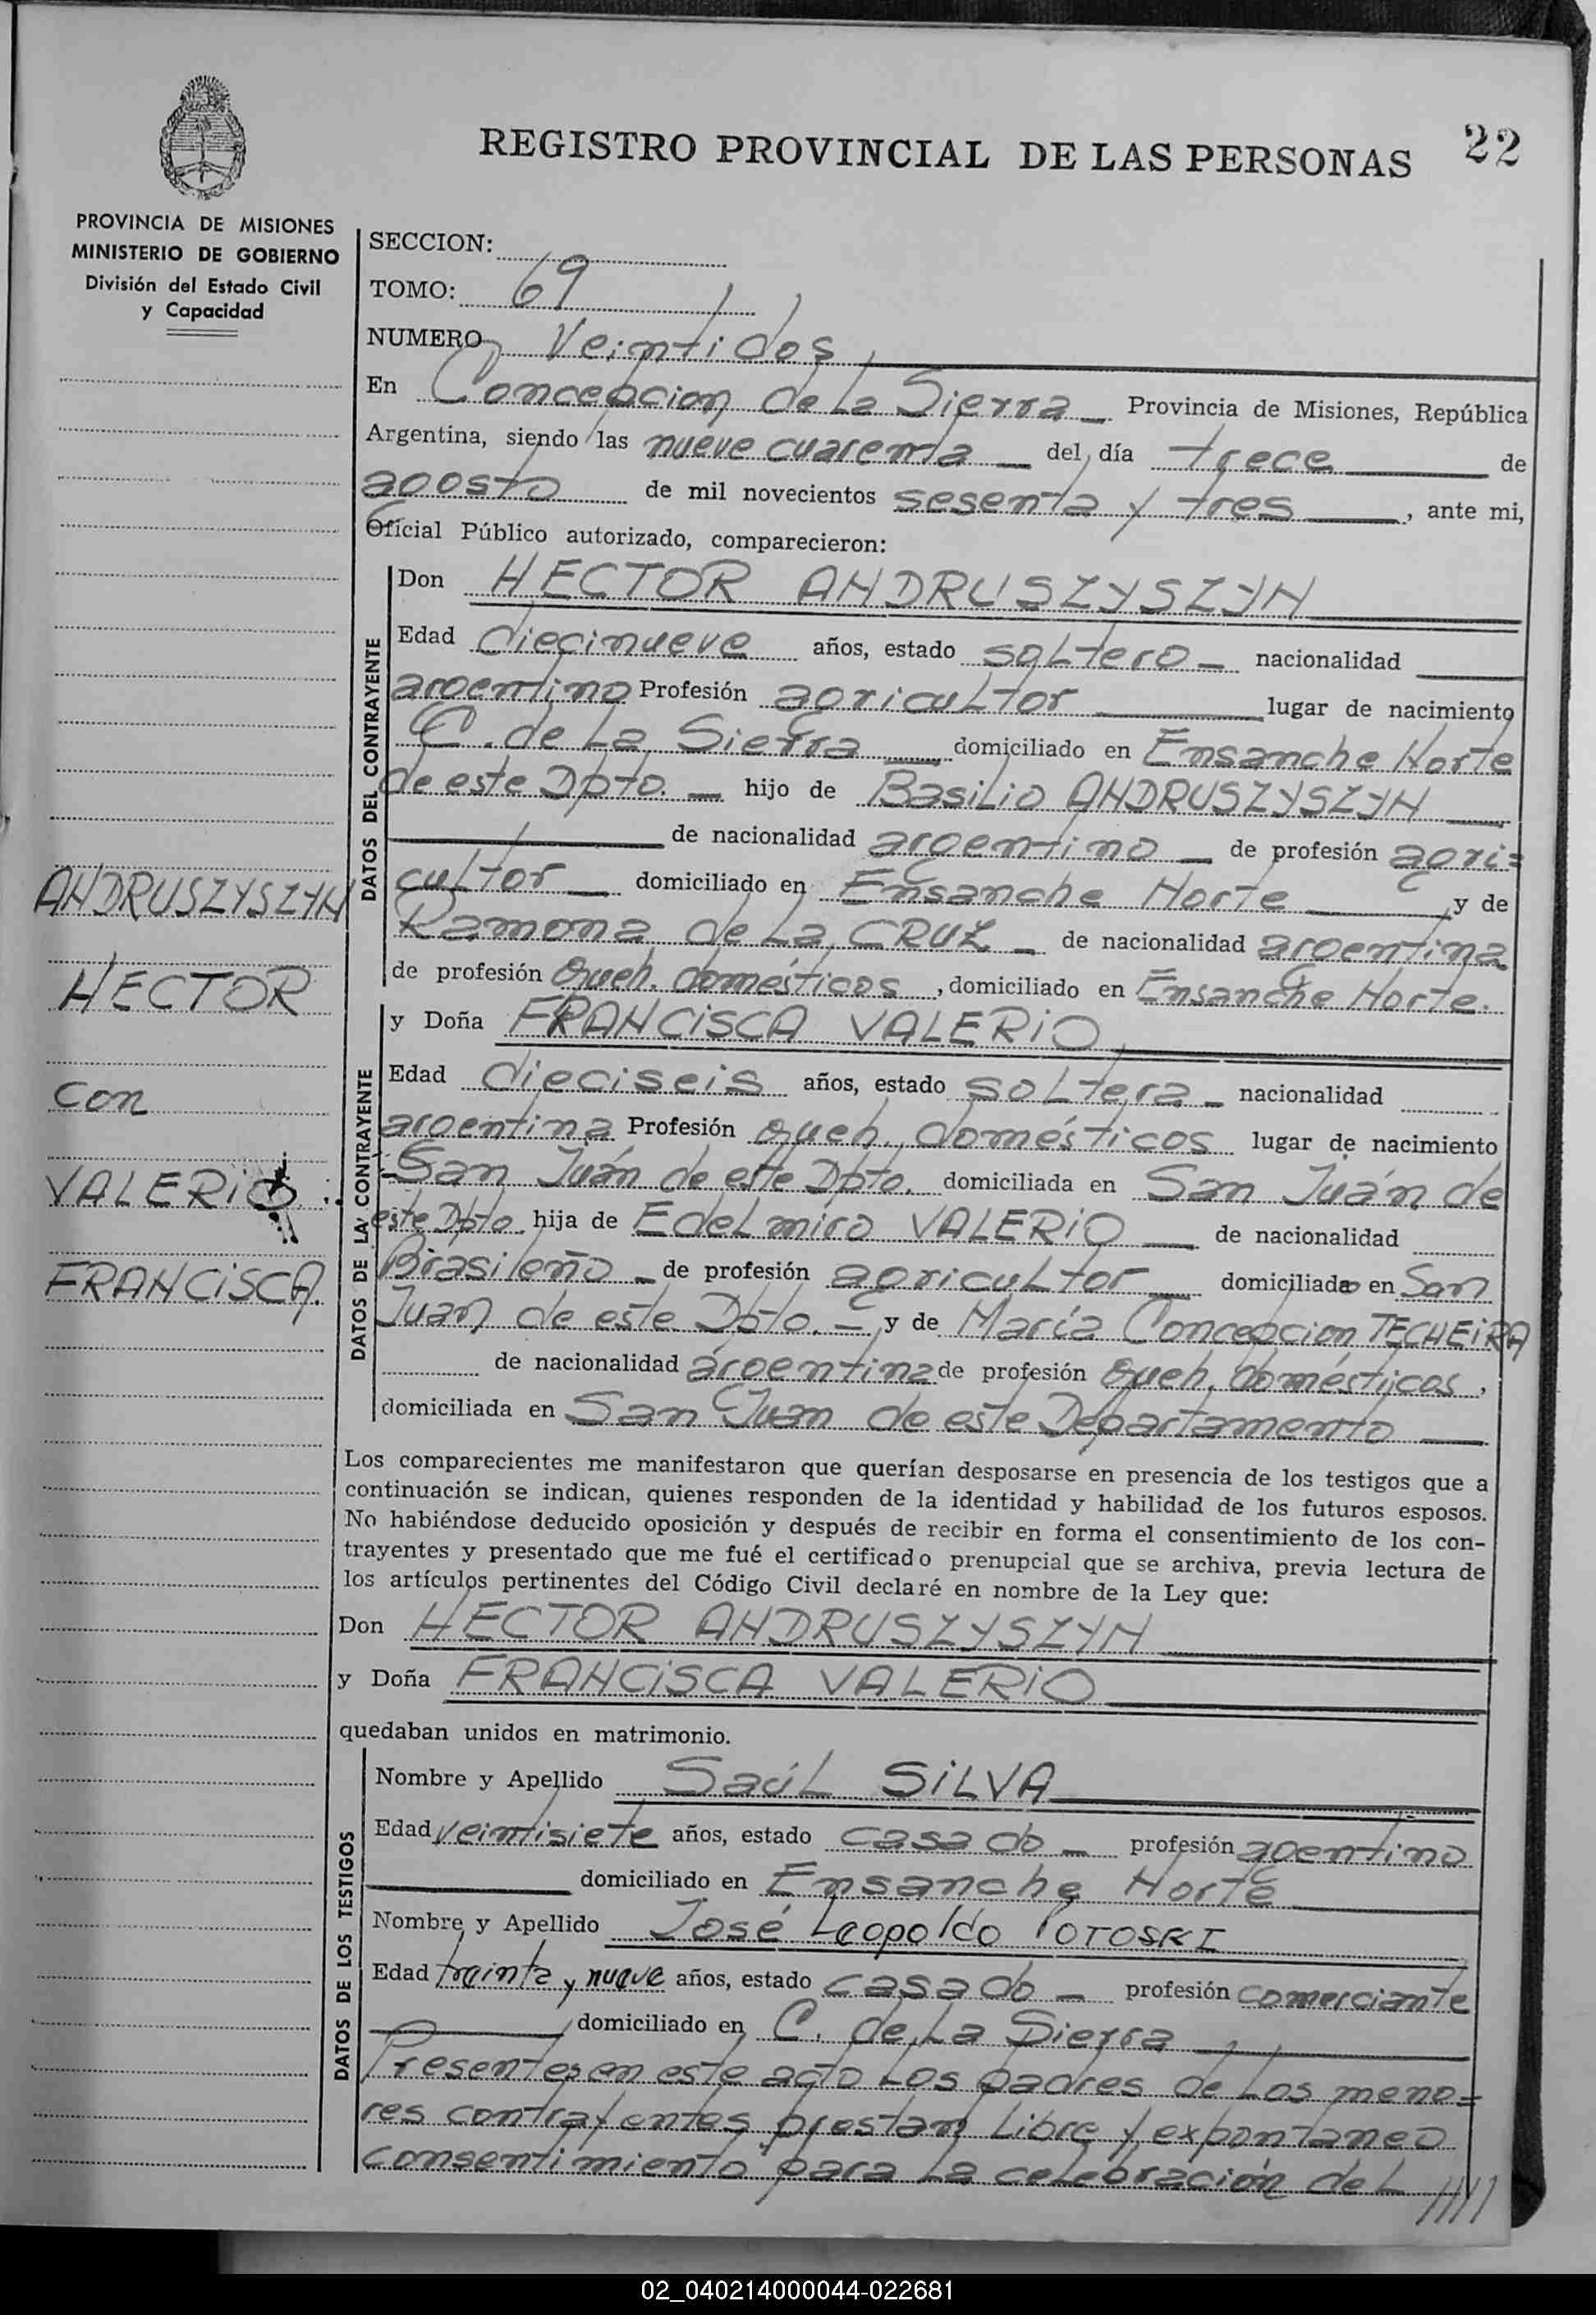 REGISTRO PROVINCIAL DE LAS PERSONAS 22
PROVINCIA DE MISIONES
MINISTERIO DE GOBIERNO
División del Estado Civil
y Capacidad
SECCION:
TOMO: 69
NUMERO Veintidos
En Concepcion de La Sierra Provincia de Misiones, República
Argentina, siendo las nueve cuarenta del día trece de
agosto de mil novecientos sesenta y tres, ante mi,
Oficial Público autorizado, comparecieron:
DATOS DEL CONTRAYENTE
Don HECTOR ANDRUSZYSZYN
Edad diecinueve años, estado soltero nacionalidad
argentino Profesión agricultor lugar de nacimiento
C. de La Sierra domiciliado en Ensanche Norte
de este Dpto. hijo de Basilio ANDRUSZYSZYN
de nacionalidad argentino de profesión agri=
cultor domiciliado en Ensanche Norte y de
Ramona de La CRUZ de nacionalidad argentina
de profesión queh. domésticos, domiciliado en Ensanche Norte.
DATOS DE LA CONTRAYENTE
y Doña FRANCISCA VALERIO
Edad dieciseis años, estado soltera nacionalidad
argentina Profesión queh. domésticos lugar de nacimiento
San Juán de este Dpto. domiciliada en San Juán de
este Dpto. hija de Edelmiro VALERIO de nacionalidad
Brasileño de profesión agricultor domiciliado en San
Juan de este Dpto. y de María Concepcion TECHEIRA
de nacionalidad argentina de profesión queh. domésticos,
domiciliada en San Juan de este Departamento
ANDRUSZYSZYN
HECTOR
con
VALERIO
FRANCISCA.
Los comparecientes me manifestaron que querían desposarse en presencia de los testigos que a
continuación se indican, quienes responden de la identidad y habilidad de los futuros esposos.
No habiéndose deducido oposición y después de recibir en forma el consentimiento de los con-
trayentes y presentado que me fué el certificado prenupcial que se archiva, previa lectura de
los artículos pertinentes del Código Civil declaré en nombre de la Ley que:
Don HECTOR ANDRUSZYSZYN
y Doña FRANCISCA VALERIO
quedaban unidos en matrimonio.
DATOS DE LOS TESTIGOS
Nombre y Apellido Saúl SILVA
Edad veintisiete años, estado casado profesión agentino
domiciliado en Ensanche Norte
Nombre y Apellido José Leopoldo POTOSKI
Edad treinta y nueve años, estado casado profesión comerciante
domiciliado en C. de La Sierra
Presentes en este acto Los padres de Los meno=
res contrayentes prestan Libre y expontaneo
consentimiento para La celebración del /////
02_040214000044-022681